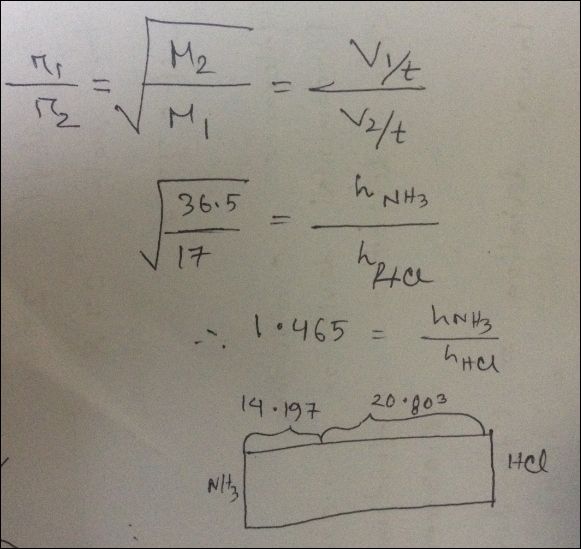 r₁/r₂ = √(M₂/M₁) = (V₁/t)/(V₂/t)
√(36.5/17) = h NH₃/h HCl
∴ 1.465 = h NH₃/h HCl
14.197 20.803
NH₃ HCl